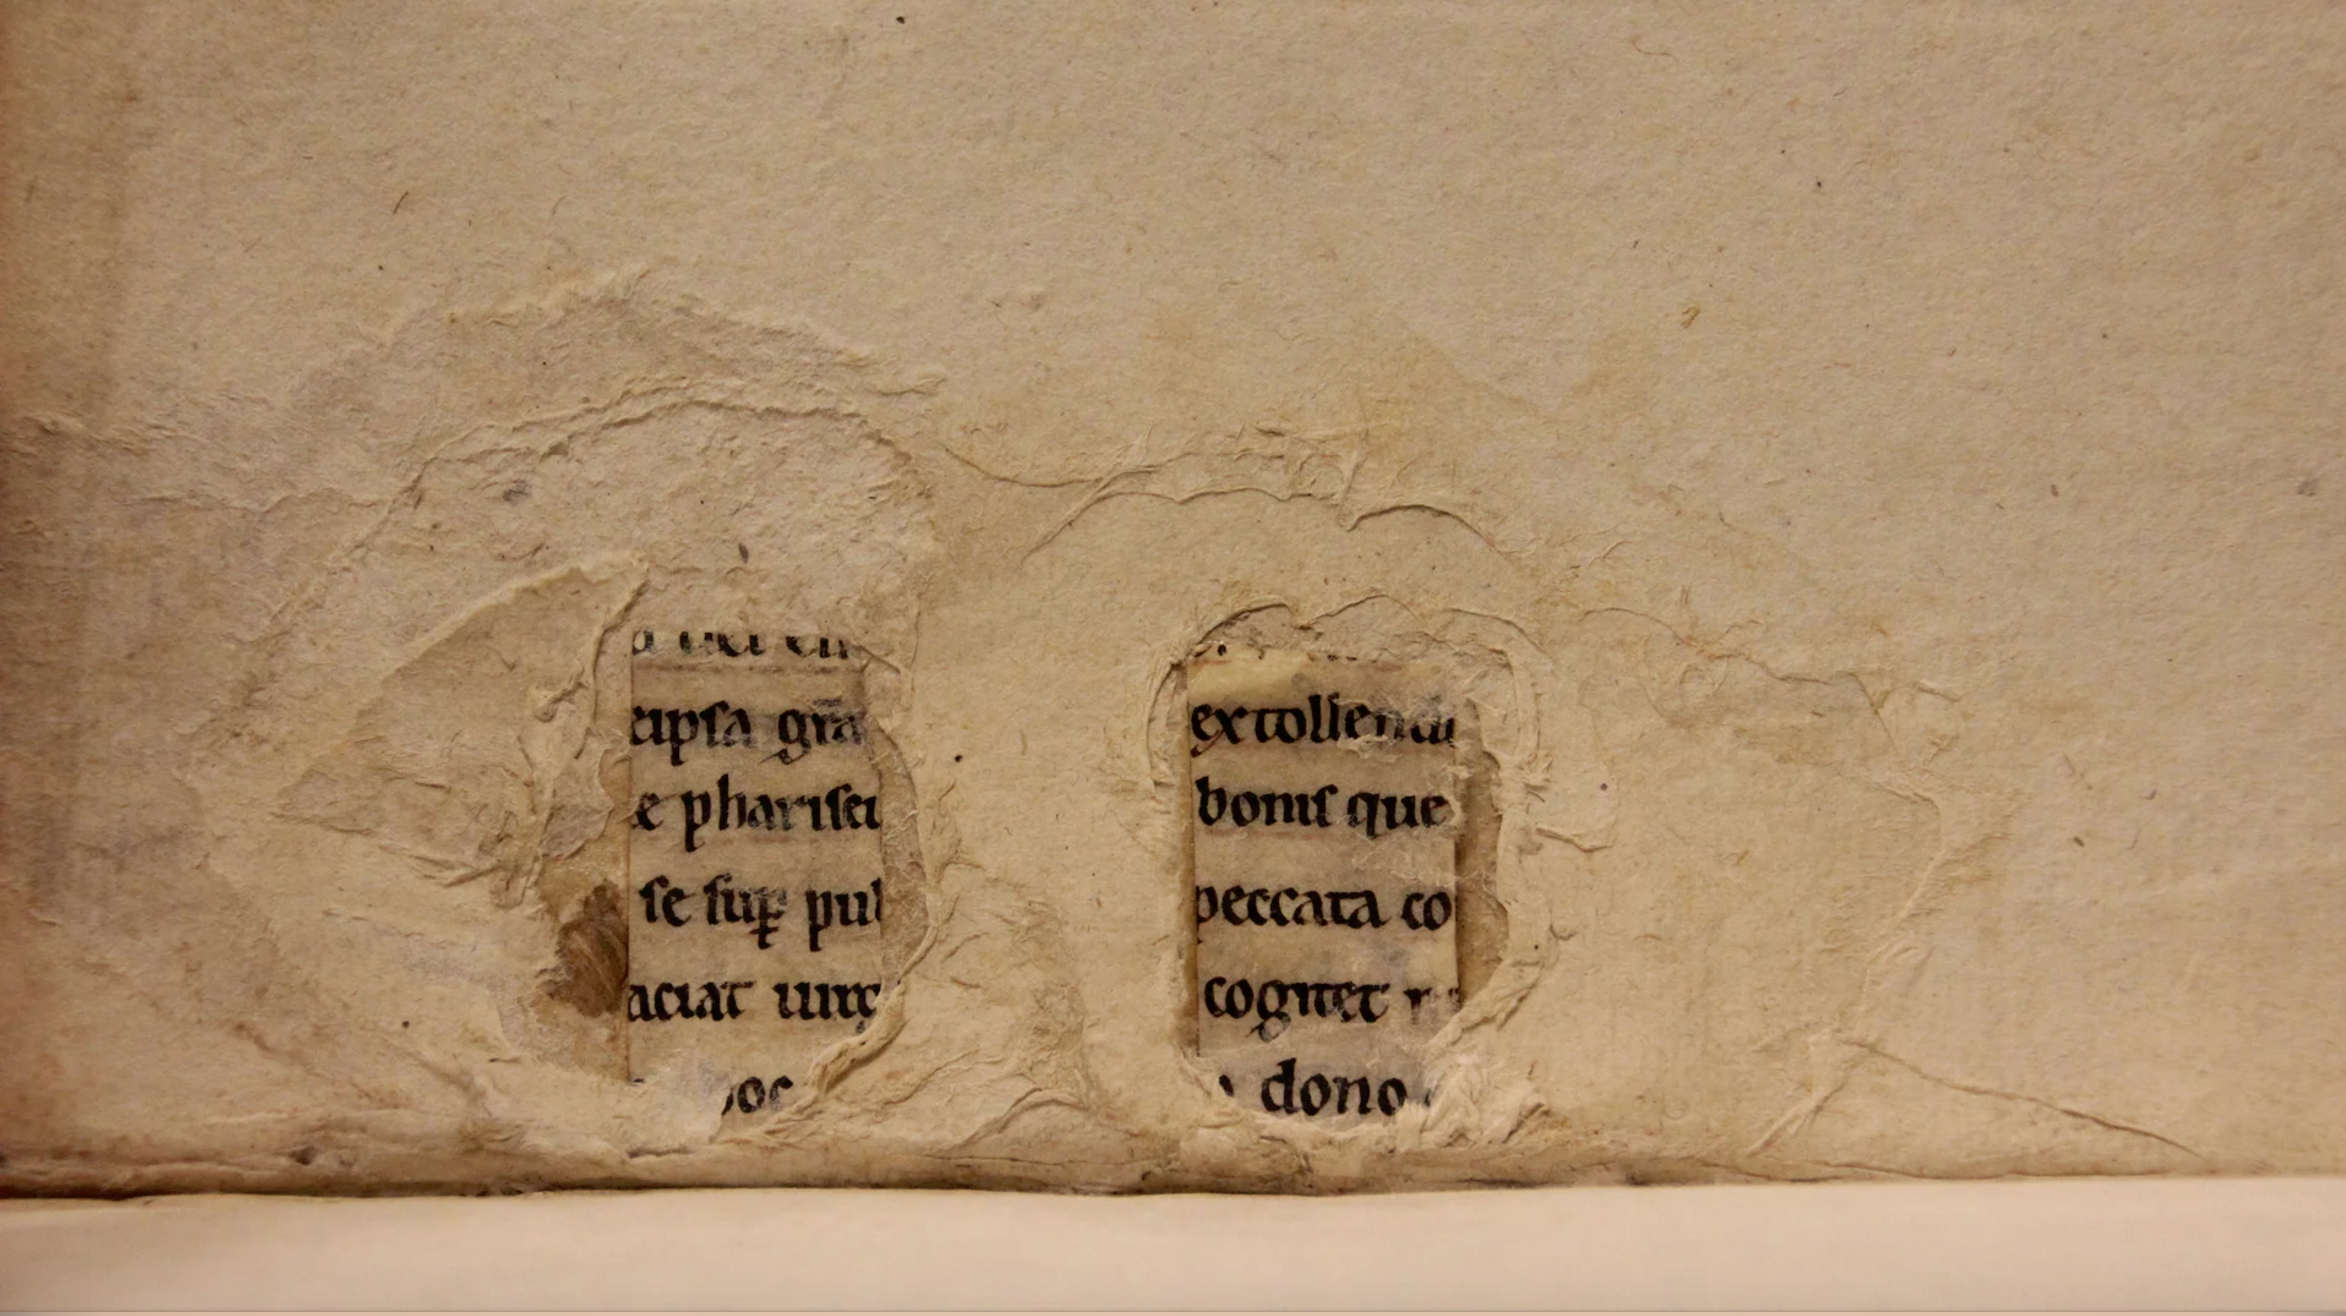 cipsa gr̄a
e pharisei
se sup̱ pul
aciat uirg
oc
extollendi
bonis que
peccata co
cogitet
dono